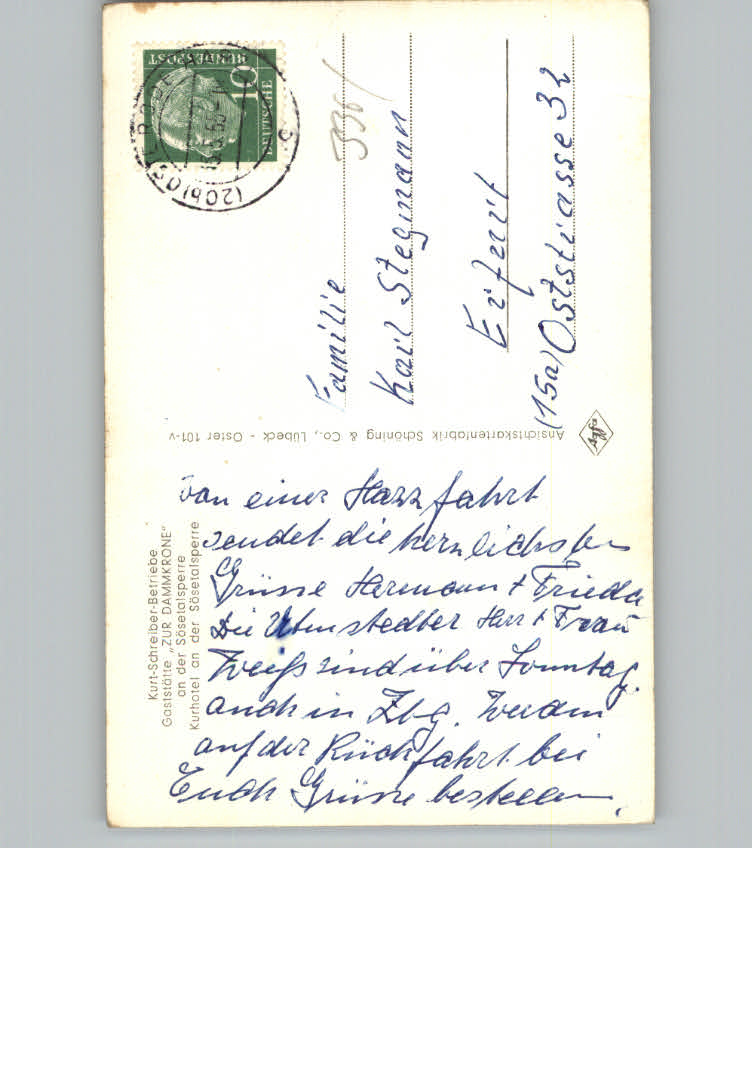 Kurt-Schreiber-Betriebe
Gaststätte „ZUR DAMMKRONE"
an der Sösetalsperre
Kurhotel an der Sösetalsperre
Von einer Harzfahrt
sendet die herzlichsten
Grüsse Hermann + Frieda
Die Utenstedter Herr + Frau
Weiß sind über Sonntag
auch in Zbg. Werden
auf der Rückfahrt bei
Euch Grüsse bestellen.
Ansichtskartenfabrik Schöning & Co., Lübeck - Oster 101-v
Agfa
DEUTSCHE
BUNDESPOST
10
(20b)
c
336/
Familie
Karl Stegmann
Erfurt
(15a) Oststrasse 32